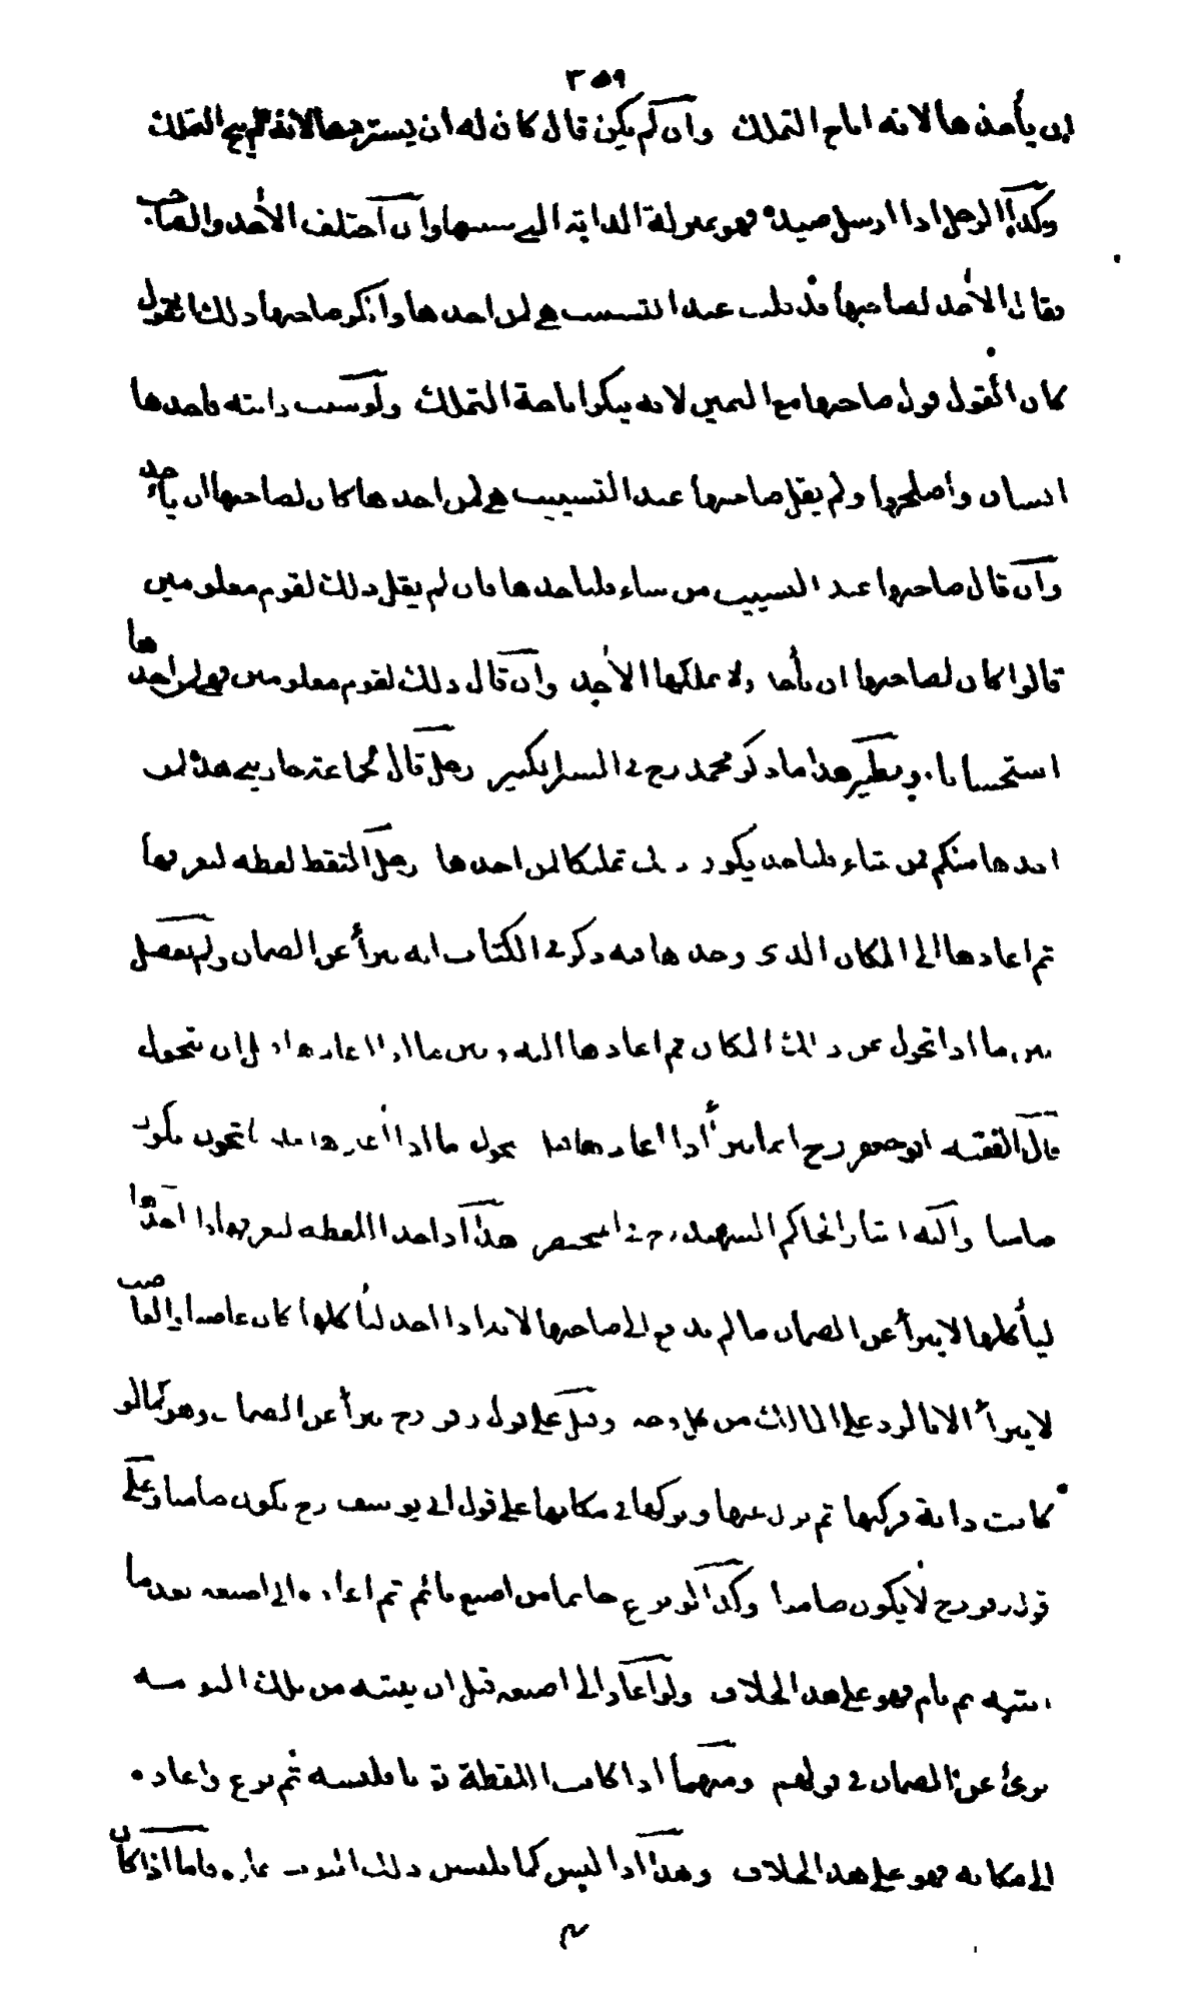 ٣٥٩
ان يأخذها لانه اباح التملك وان لم يكن قال كان له ان يستردها لانه لم يبح التملك
وكذا الرجل اذا ارسل صيده فهو بمنزلة الدابة التي سيبها وان اختلف الآخذ والصاحب
فقال الآخذ لصاحبها قد قلت عند التسييب هي لمن اخذها وانكر صاحبها ذلك القول
كان القول قول صاحبها مع اليمين لانه ينكر اباحة التملك ولو سيب دابته فاخذها
انسان واصلحها ولم يقل صاحبها عند التسييب هي لمن اخذها كان لصاحبها ان يأخذ
وان قال صاحبها عند التسييب من شاء فلياخذها فان لم يقل ذلك لقوم معلومين
قالوا كان لصاحبها ان يأخذ ولا يملكها الآخذ وان قال ذلك لقوم معلومين فهي لمن اخذها
استحسانا ونظير هذا ما ذكر محمد رح في السير الكبير رجل قال لجماعة جاريتي هذه لمن
اخذها منكم فمن شاء فلياخذ يكون ذلك تمليكا لمن اخذها رجل التقط لقطة ليعرفها
ثم اعادها الى المكان الذي وجدها فيه ذكر في الكتاب انه يبرأ عن الضمان ولم يفصل
بين ما اذا تحول عن ذلك المكان ثم اعادها اليه وبين ما اذا اعادها قبل ان يتحول
قال الفقيه ابو جعفر رح انما يبرأ اذا اعادها قبل التحول ما اذا اعادها بعد ما تحول يكون
ضامنا واليه اشار الحاكم الشهيد رح في المختصر هذا اذا اخذ اللقطة ليعرفها اذا اخذها
ليأكلها لا يبرأ عن الضمان ما لم يدفع الى صاحبها لانه اذا اخذ ليأكلها كان غاصبا والغاصب
لا يبرأ الا بالرد على المالك من كل وجه وقيل على قول زفر رح يبرأ عن الضمان وهو كما لو
كانت دابة فركبها ثم نزل عنها وتركها في مكانها على قول ابي يوسف رح يكون ضامنا وعلى
قول زفر رح لا يكون ضامنا وكذا لو نزع خاتما من اصبع نائم ثم اعاده الى اصبعه بعد ما
انتبه ثم نام فهو على هذا الخلاف ولو اعاد الى اصبعه قبل ان ينتبه من تلك النومة
برئ عن الضمان في قولهم ومنهما اذا كانت اللقطة ثوبا فلبسه ثم نزع واعاده
الى مكانه فهو على هذا الخلاف وهذا اذا لبس كما يلبس ذلك الثوب عادة فاما اذا كان